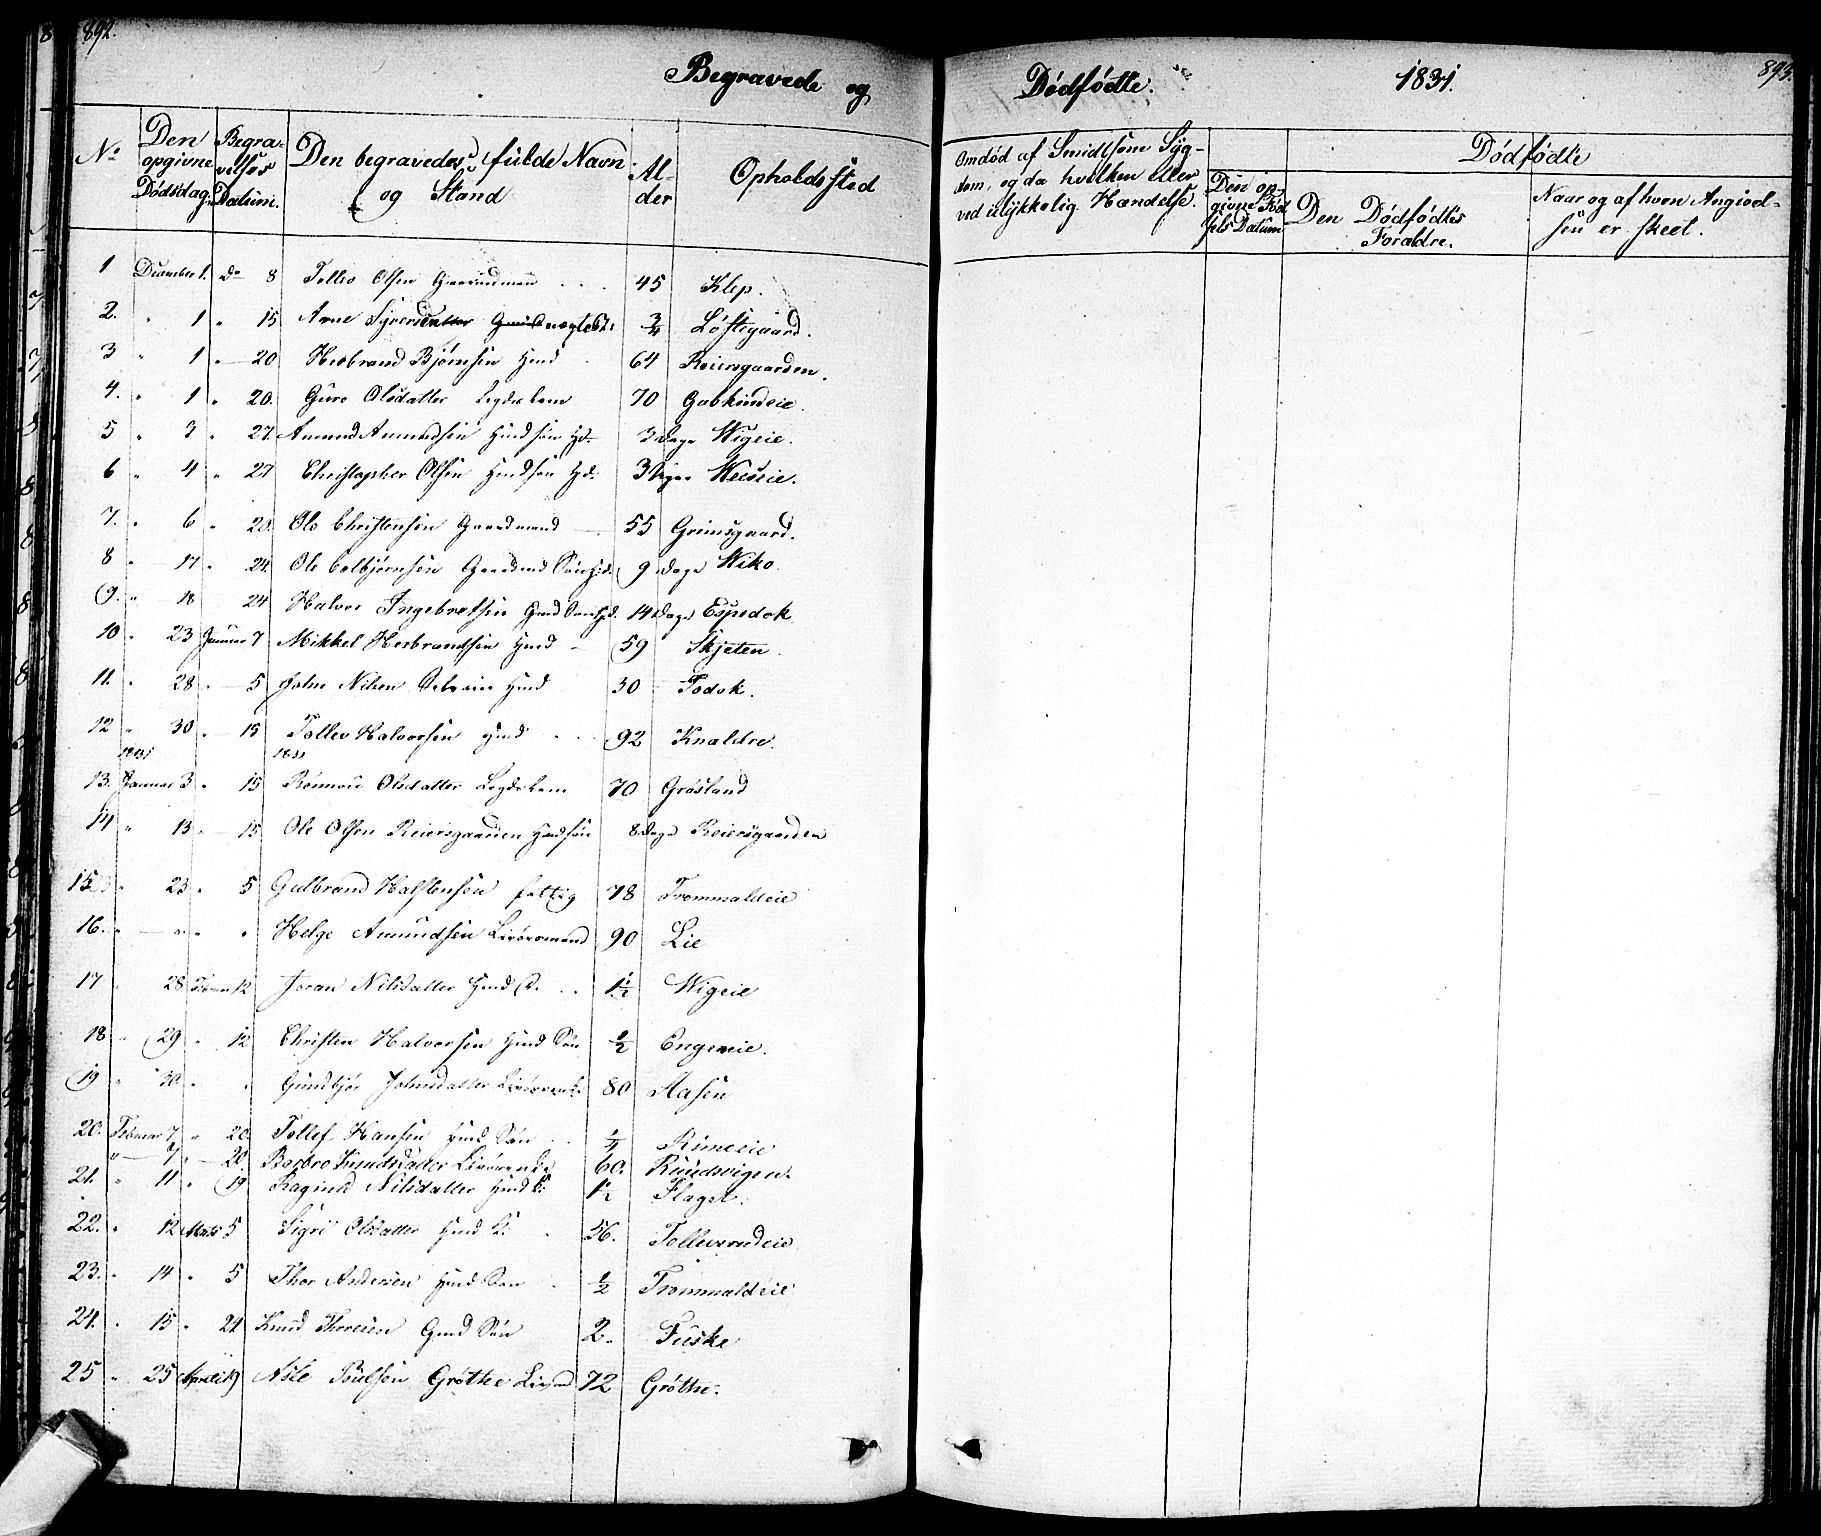 892.
Begravede og Dødfødte. 1831.
893.
No
Den opgivne Dødsdag.
Begravelses Datum.
Den begravedes fulde Navn og Stand
Alder
Opholdssted
Omdød af Smidtsom Sygdom, og da hvilken eller ved ulykkelig Hændelse.
Dødfødte
Den opgivne Fødsels Datum
Den Dødfødtes Forældre.
Naar og af hvem Angivelsen er skeet.
1 December 1. do 8 Tollev Olsen Gaardmand 45 Klep.
2. " 1 " 15 Arne Syver 3/4 Løstegaard.
3 " 1 " 20 Herbrand Bjørnsen Hmd 64 Reiersgaarden.
4. " 1 " 20. Guro Olsdatter Legdelem 70
5 " 3 " 27. Amund Amundsen Hmd søn 3 Dage Wigeie.
6 " 4 " 27 Christopher Olsen Hmdsøn 3 Uger
7. " 6 " 20. Ole Christensen Gaardmand 55 Grimsgaard.
8 " 17 " 24. Ole Colbjørnsen Gaardmd Søn 9 Dage Wiko.
9. " 18 24 Halvor Ingebretsen Gmd Søn 14 Dage Espedok
10 " 23 Januar 7 Mikkel Herbrandsen Hmd 59 Skjeten.
11. " 28 " 5 John Nilsen Hmd 30 Todok.
12 " 30 " 15 Tollev Halvorsen Hmd 92 Knaldre.
1831 1831
13. Januar 3 " 15 Rønnou Olsdatter Legdelem 70 Grøsland
14 " 13 " 15 Ole Olsen Reiersgaarden Hmdsøn 8 Dage Reiersgaarden
15 " 23 " 5 Gulbrand Halstensen fattig 78 Trommaldeie
16. " " " " Helge Amundsen Livøremand 90 Lie
17 " 28 Februar 12 Joran Nilsdatter Hmd D. 1 1/2 Wigeie
18 " 29 " 12 Christen Halvorsen Hmd Søn 1/2 Engeneie.
19 " 30 " " Gundbjør Johnsdatter 80 Aasen
20. Februar 7 " 20. Tollef Hansen Hmd Søn 1/4 Rimeeie
" 7 20. Barbro Knudsdatter 60. Ruudsvigen.
21. " 11 " 19 Ragnild Nilsdatter Hmd 1 1/2 Flaget.
22. " 12 Marts 5 Sigri Olsdatter Hmd K. 56.
23. " 14 " 5 Thor Andersen Hmd Søn 1/2 Trommaldeie
24. " 15 " 21 Knud Thoresen Gmd Søn 2. Fuske
25 " 25 April 19 Asle Poulsen Grøthe 72 Grøthe.